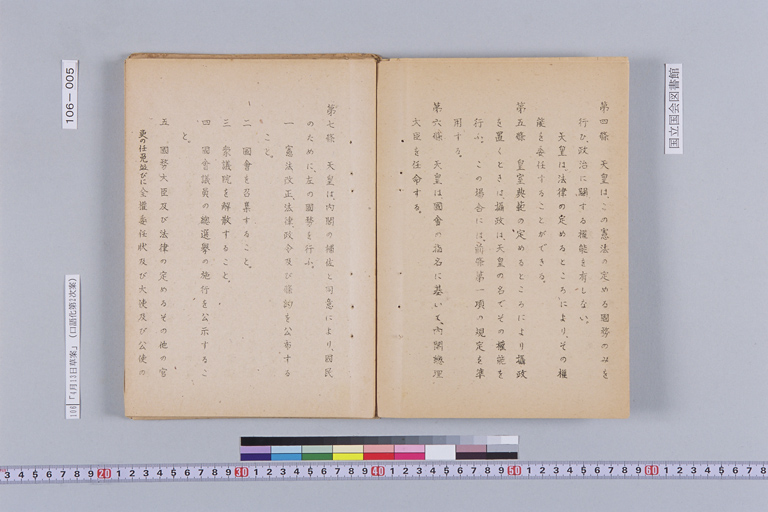 第四條　天皇は、この憲法の定める國務のみを
行ひ、政治に關する權能を有しない。
天皇は、法律の定めるところにより、その權
能を委任することができる。
第五條　皇室典範の定めるところにより攝政
を置くときは、攝政は、天皇の名でその權能を
行ふ。この場合には、前條第一項の規定を準
用する。
第六條　天皇は、國會の指名に基いて、內閣總理
大臣を任命する。
第七條　天皇は、內閣の補佐と同意により、國民
のために、左の國務を行ふ。
一　憲法改正、法律、政令及び條約を公布する
こと。
二　國會を召集すること。
三　衆議院を解散すること。
四　國會議員の總選擧の施行を公示するこ
と。
五　國務大臣及び法律の定めるその他の官
吏の任免並びに全權委任狀及び大使及び公使の
国立国会図書館
106-005
106「4月13日草案」(口語化第2次案)
3 4 5 6 7 8 9 20 1 2 3 4 5 6 7 8 9 30 1 2 3 4 5 6 7 8 9 40 1 2 3 4 5 6 7 8 9 50 1 2 3 4 5 6 7 8 9 60 1 2 3 4 5 6 7 8